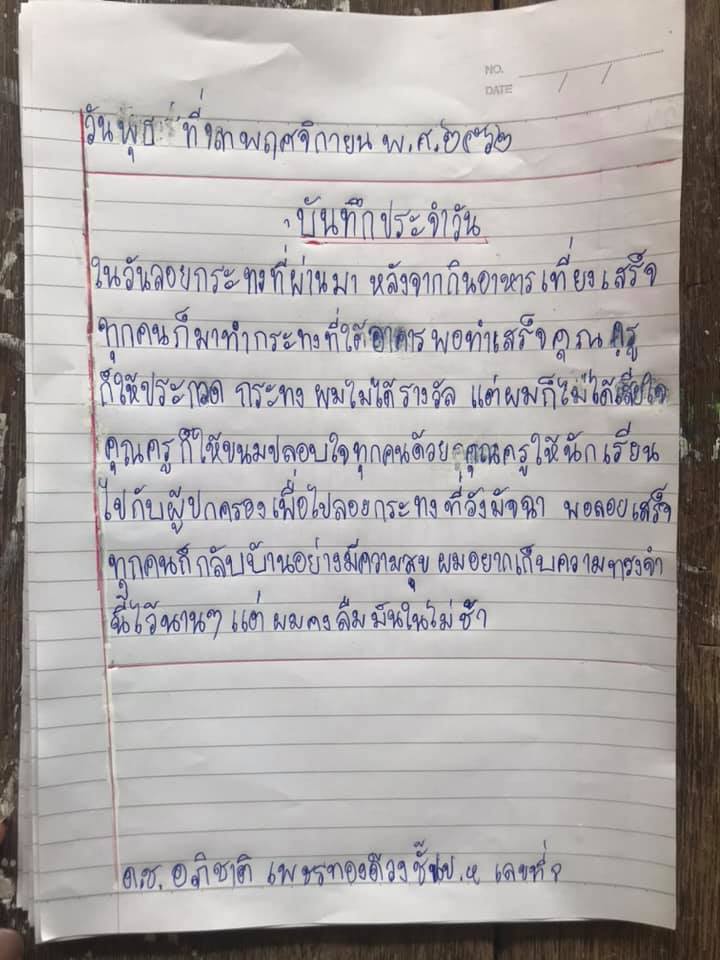 NO.
DATE / /
วันพุธ ที่๑๓ พฤศจิกายน พ.ศ.๒๕๖๒
บันทึกประจำวัน
ในวันลอยกระทงที่ผ่านมา หลังจากกินอาหารเที่ยงเสร็จ
ทุกคนก็มาทำกระทงที่ใต้อาคาร พอทำเสร็จคุณครู
ก็ให้ประกวด กระทง ผมไม่ได้รางวัล แต่ผมก็ไม่ได้เสียใจ
คุณครูก็ให้ขนมปลอบใจทุกคนด้วย คุณครูให้นักเรียน
ไปกับผู้ปกครองเพื่อไปลอยกระทงที่วังมัจฉา พอลอยเสร็จ
ทุกคนก็กลับบ้านอย่างมีความสุข ผมอยากเก็บความทรงจำ
นี้ไว้นานๆ แต่ ผมคงลืมมันในไม่ช้า
ด.ช. อภิชาติ เพชรทองดีวง ชั้นป.๕ เลขที่ ๑